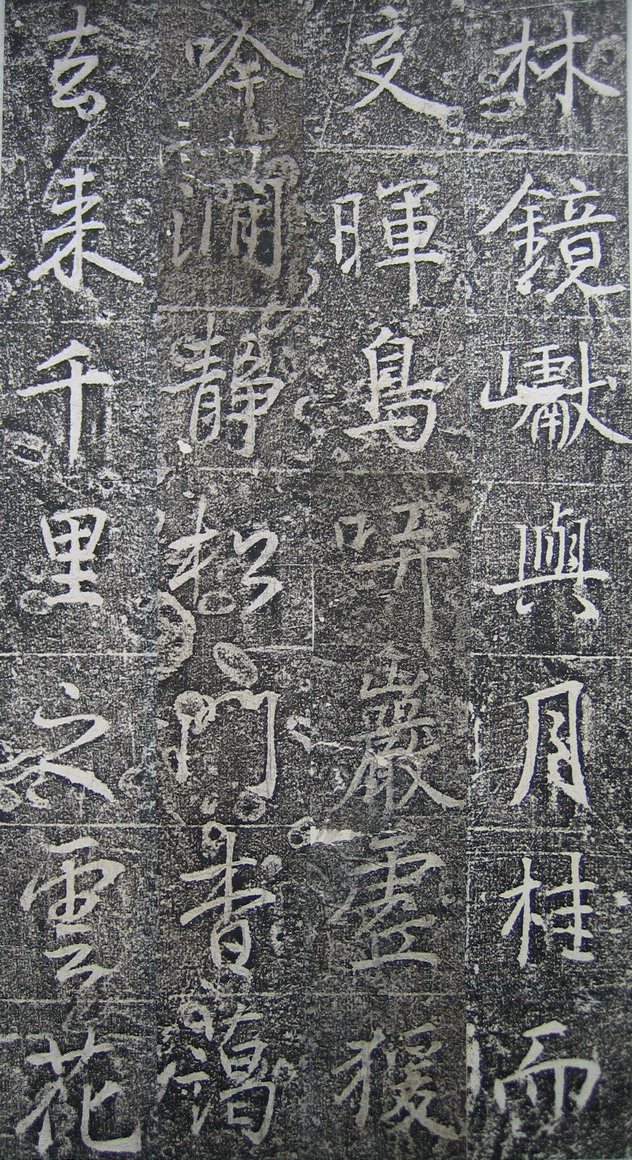 林鏡巘與月桂而
交暉鳥哢巖虛猨
吟澗靜松門杳藹
去来千里之雲花